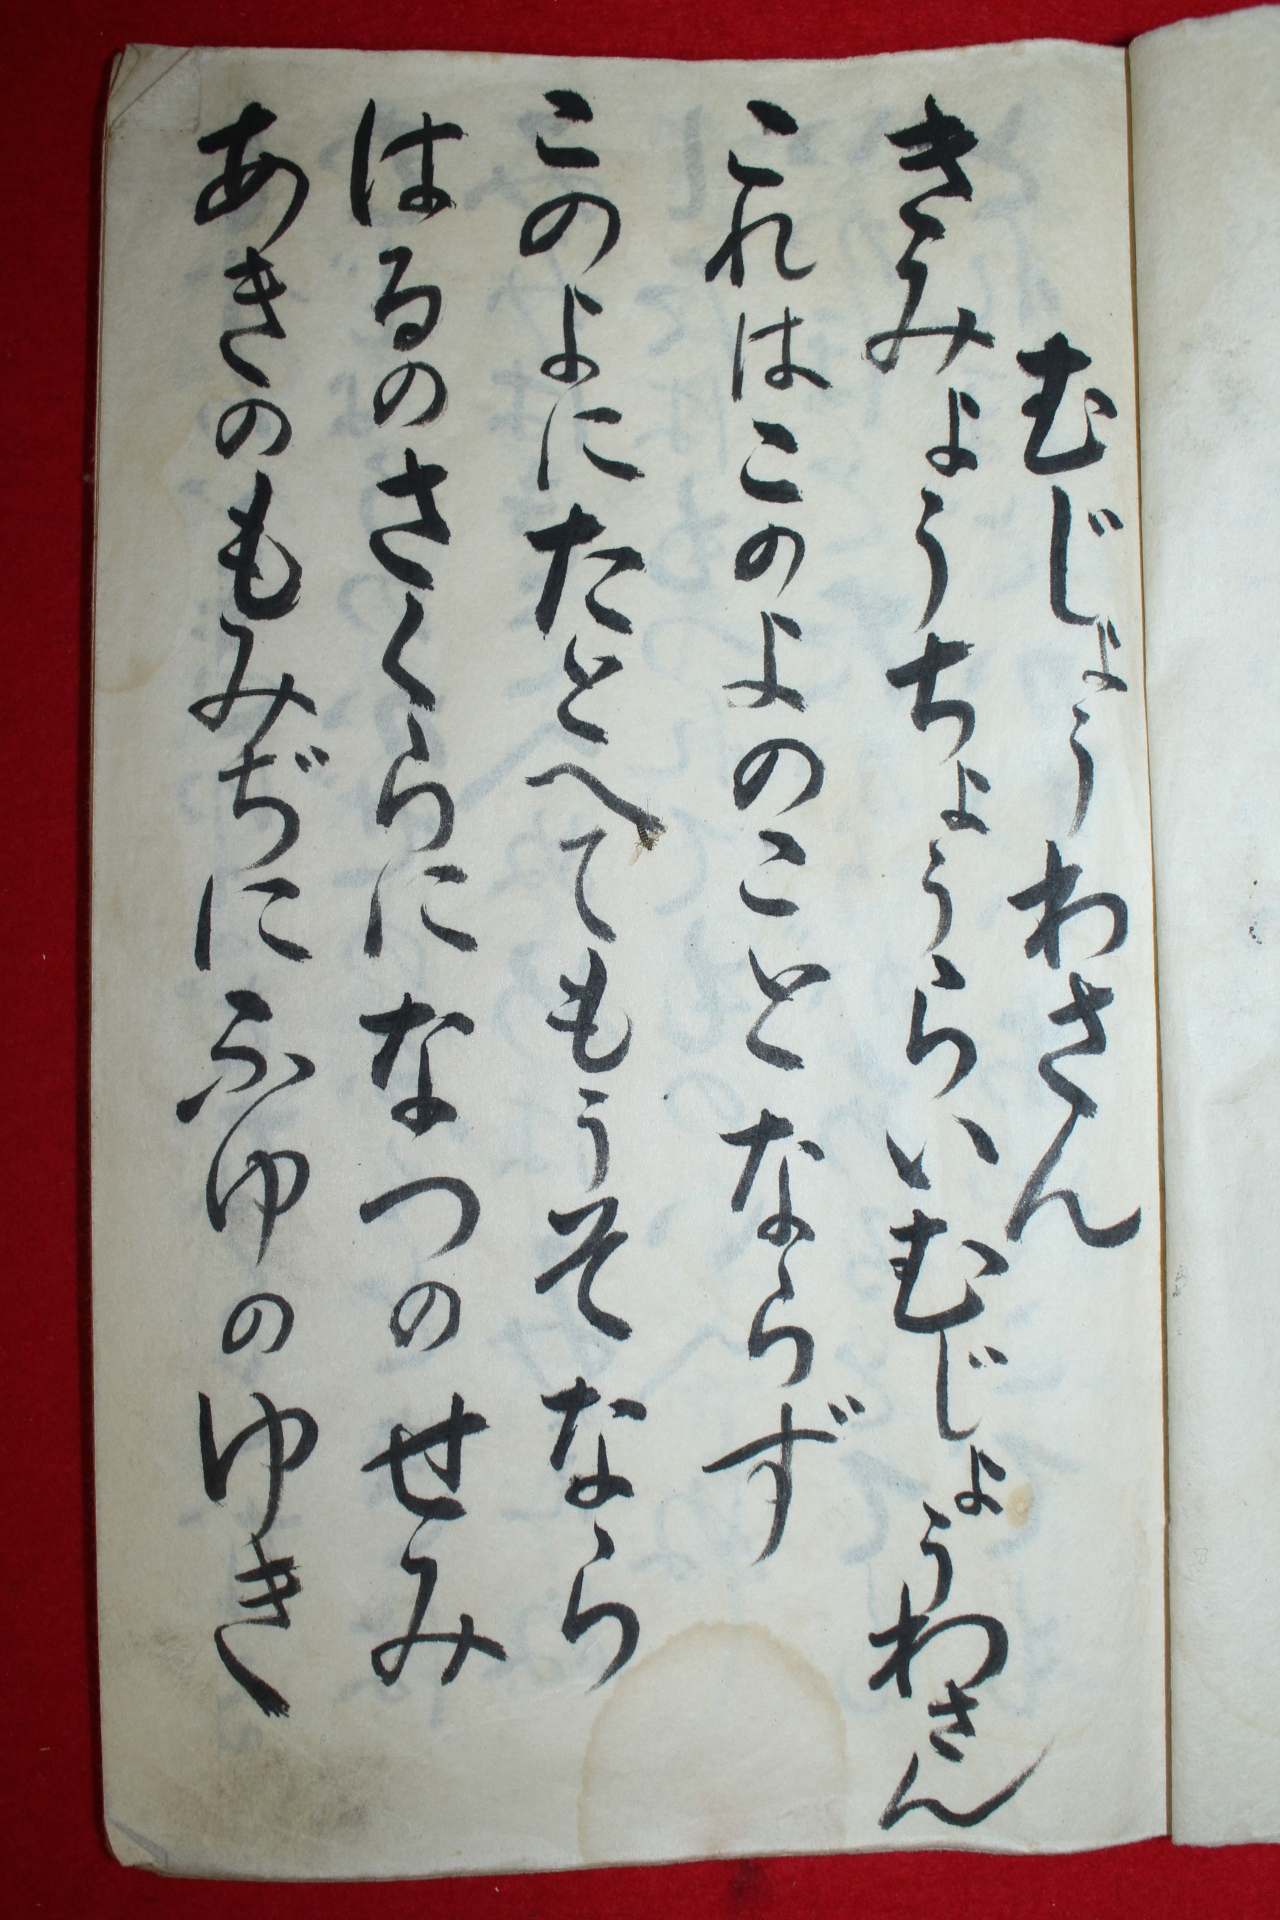 むじょうわさん
きみょうちょうらいむじょうわさん
これはこのよのことならず
このよにたとへてもうそなら
はるのさくらになつのせみ
あきのもみぢにふゆのゆき